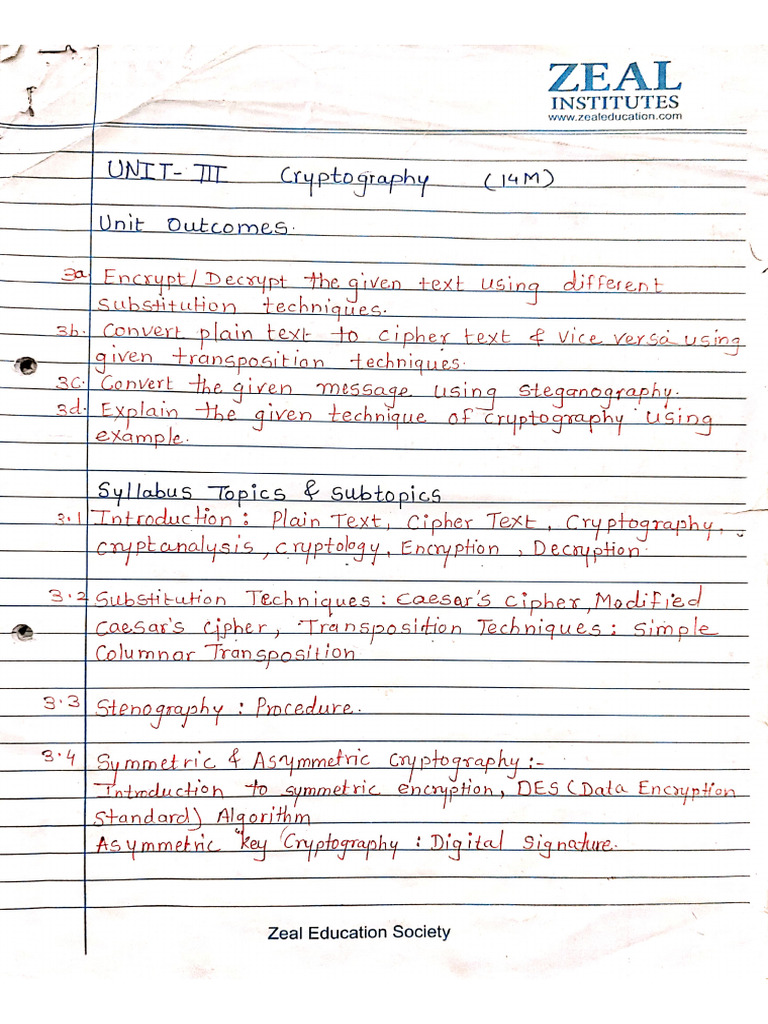 ZEAL
INSTITUTES
www.zealeducation.com
UNIT-III Cryptography (14M)
Unit Outcomes.
3a Encrypt/Decrypt the given text using different
substitution techniques.
3b. Convert plain text to cipher text & vice versa using
given transposition techniques.
3c. Convert the given message using steganography.
3d. Explain the given technique of cryptography using
example.
Syllabus Topics & subtopics
3.1 Introduction: Plain Text, Cipher Text, Cryptography,
cryptanalysis, cryptology, Encryption, Decryption.
3.2 Substitution Techniques: Caesar's cipher, Modified
Caesar's cipher, Transposition Techniques: Simple
Columnar Transposition
3.3 Stenography: Procedure.
3.4 Symmetric & Asymmetric cryptography:-
Introduction to symmetric encryption, DES (Data Encryption
Standard) Algorithm
Asymmetric key Cryptography: Digital Signature.
Zeal Education Society